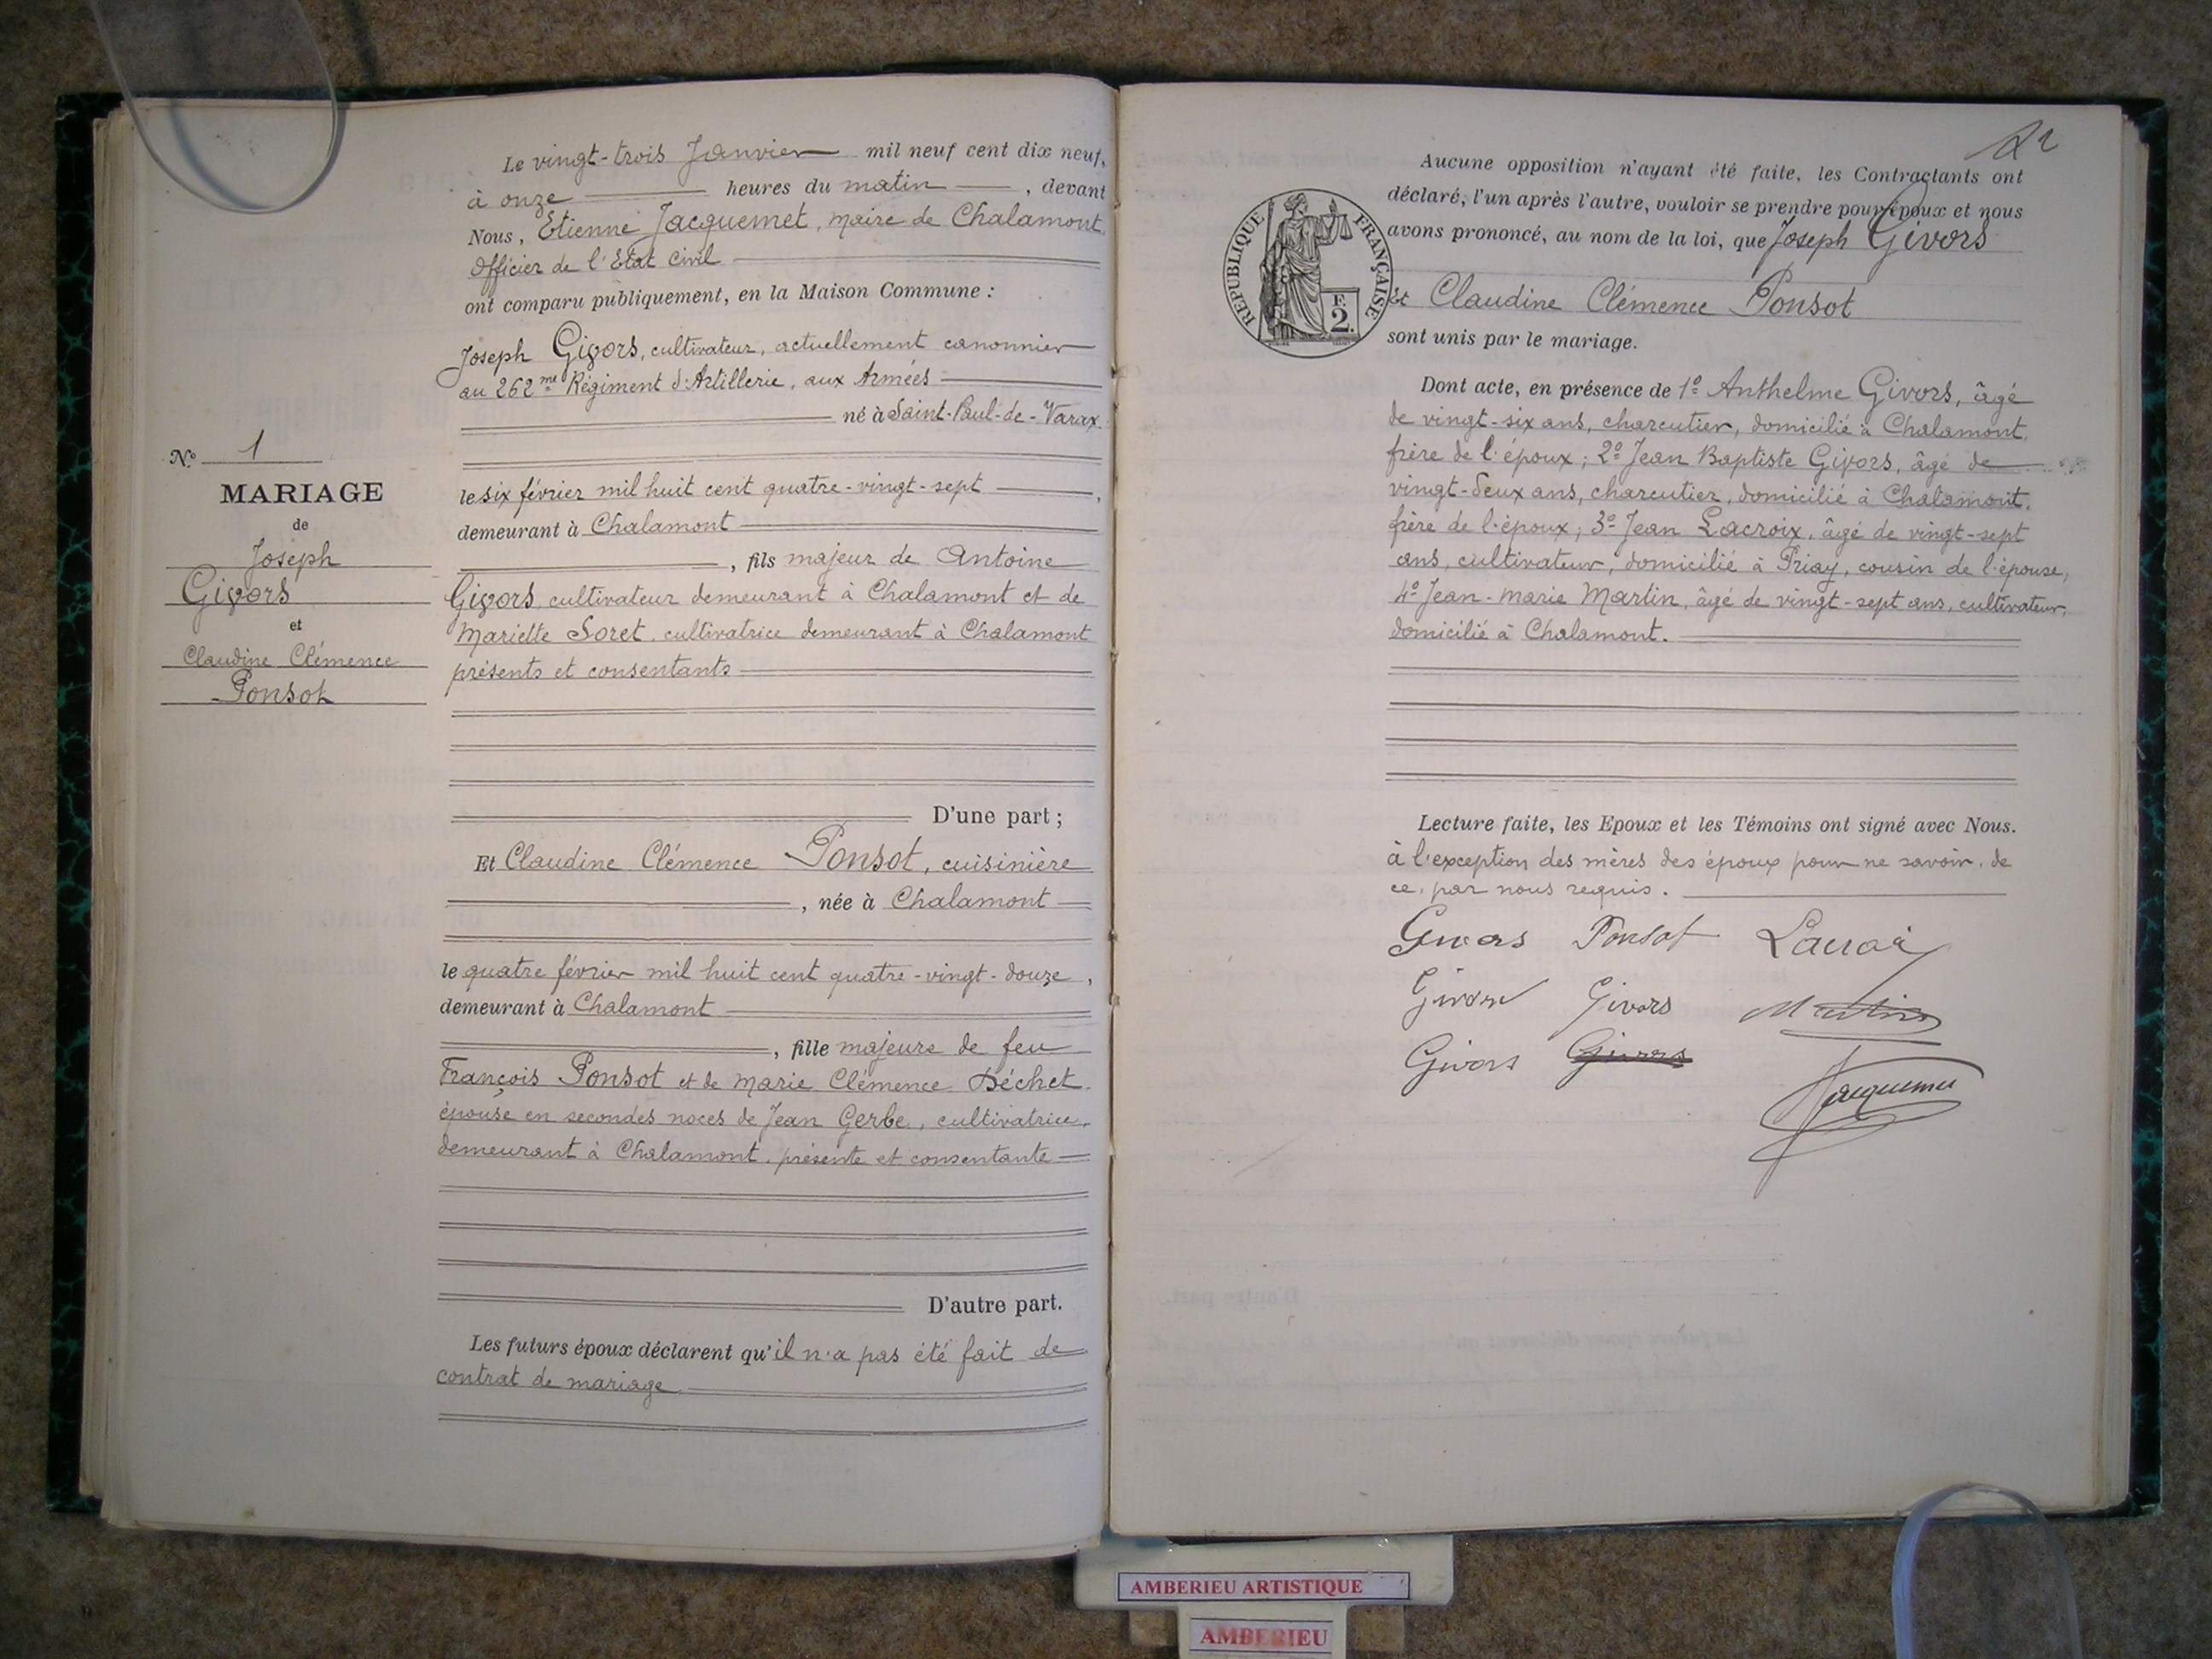 Le vingt-trois Janvier mil neuf cent dix neuf,
à onze heures du matin, devant
Nous, Etienne Jacquemet, maire de Chalamont,
Officier de l'Etat Civil
ont comparu publiquement, en la Maison Commune :
Joseph Givors, cultivateur, actuellement canonnier
au 262me Régiment d'Artillerie, aux Armées
né à Saint-Paul-de-Varax
le six février mil huit cent quatre-vingt-sept,
demeurant à Chalamont
, fils majeur de Antoine
Givors, cultivateur demeurant à Chalamont et de
Mariette Soret, cultivatrice demeurant à Chalamont
présents et consentants
D'une part ;
Et Claudine Clémence Ponsot, cuisinière
, née à Chalamont
le quatre février mil huit cent quatre-vingt-douze,
demeurant à Chalamont
, fille majeure de feu
François Ponsot et de Marie Clémence Déchet,
épouse en secondes noces de Jean Gerbe, cultivatrice,
demeurant à Chalamont, présente et consentante
D'autre part.
Les futurs époux déclarent qu'il n'a pas été fait de
contrat de mariage
No 1
MARIAGE
de
Joseph
Givors
et
Claudine Clémence
Ponsot
Aucune opposition n'ayant été faite, les Contractants ont
déclaré, l'un après l'autre, vouloir se prendre pour époux et nous
avons prononcé, au nom de la loi, que Joseph Givors
Et Claudine Clémence Ponsot
sont unis par le mariage.
RÉPUBLIQUE FRANÇAISE
F.
2.
Dont acte, en présence de 1º Anthelme Givors, âgé
de vingt-six ans, charcutier, domicilié à Chalamont,
frère de l'époux ; 2º Jean Baptiste Givors, âgé de
vingt-deux ans, charcutier, domicilié à Chalamont,
frère de l'époux ; 3º Jean Lacroix, âgé de vingt-sept
ans, cultivateur, domicilié à Priay, cousin de l'épouse,
4º Jean-Marie Martin, âgé de vingt-sept ans, cultivateur,
domicilié à Chalamont.
Lecture faite, les Epoux et les Témoins ont signé avec Nous.
à l'exception des mères des époux pour ne savoir, de
ce, par nous requis.
Givors Ponsot Lacroix
Givors Givors Martin
Givors Givors
Jacquemet
AMBERIEU ARTISTIQUE
AMBERIEU